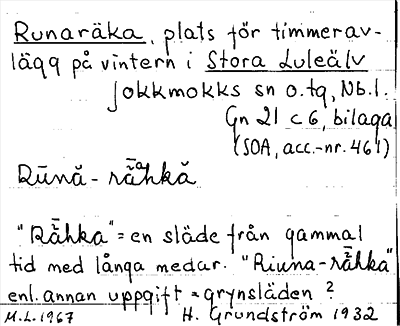 Runaräka, plats för timmerav-
lägg på vintern i Stora Luleälv
Jokkmokks sn o. tg, Nb. l.
Gn 21 c 6, bilaga
(SOA, acc.-nr. 461)
Rūnă - rā̊hkă
"Rǟhka" = en släde från gammal
tid med långa medar. "Riuna-rǟhka"
enl. annan uppgift = grynsläden ?
M.L. 1967 H. Grundström 1932